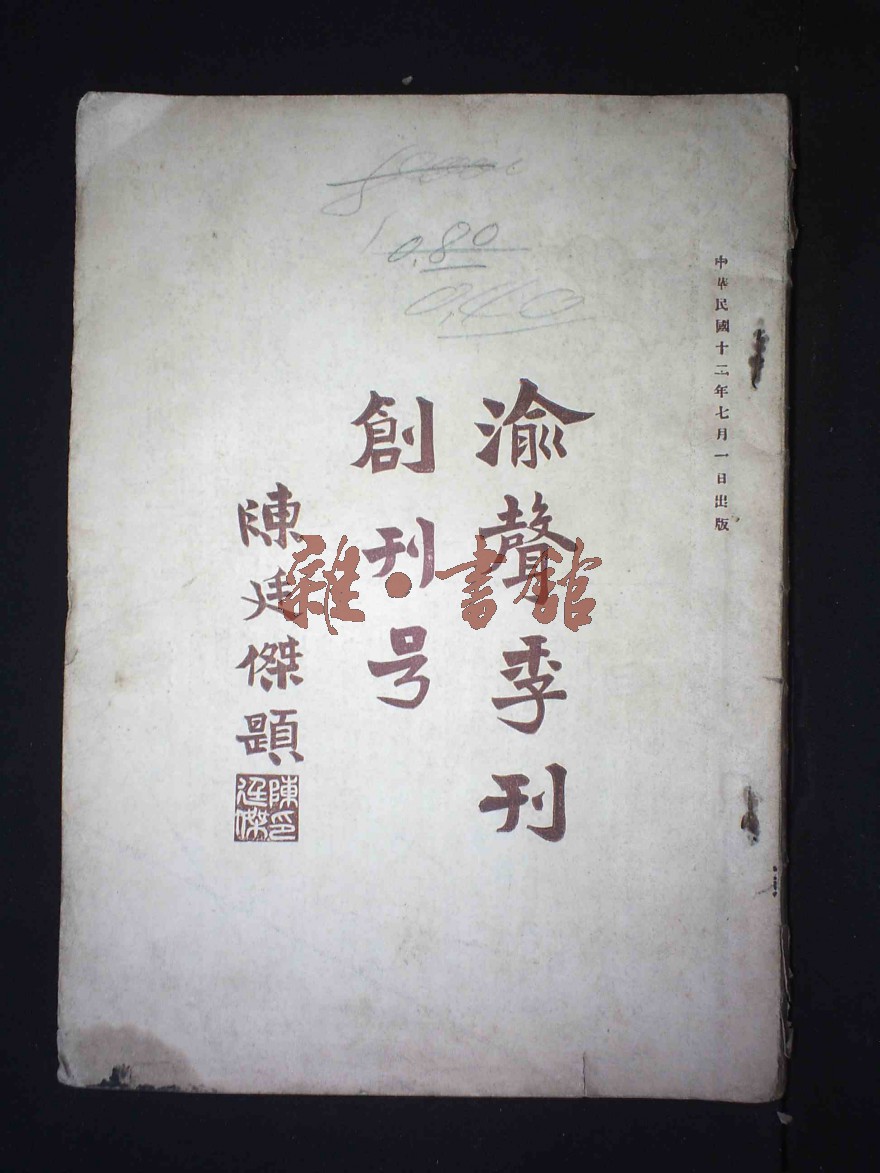 中華民國十二年七月一日出版
渝聲季刊
創刊号
陳廷傑題
陳廷傑印
雜·書館
0.80
0.40